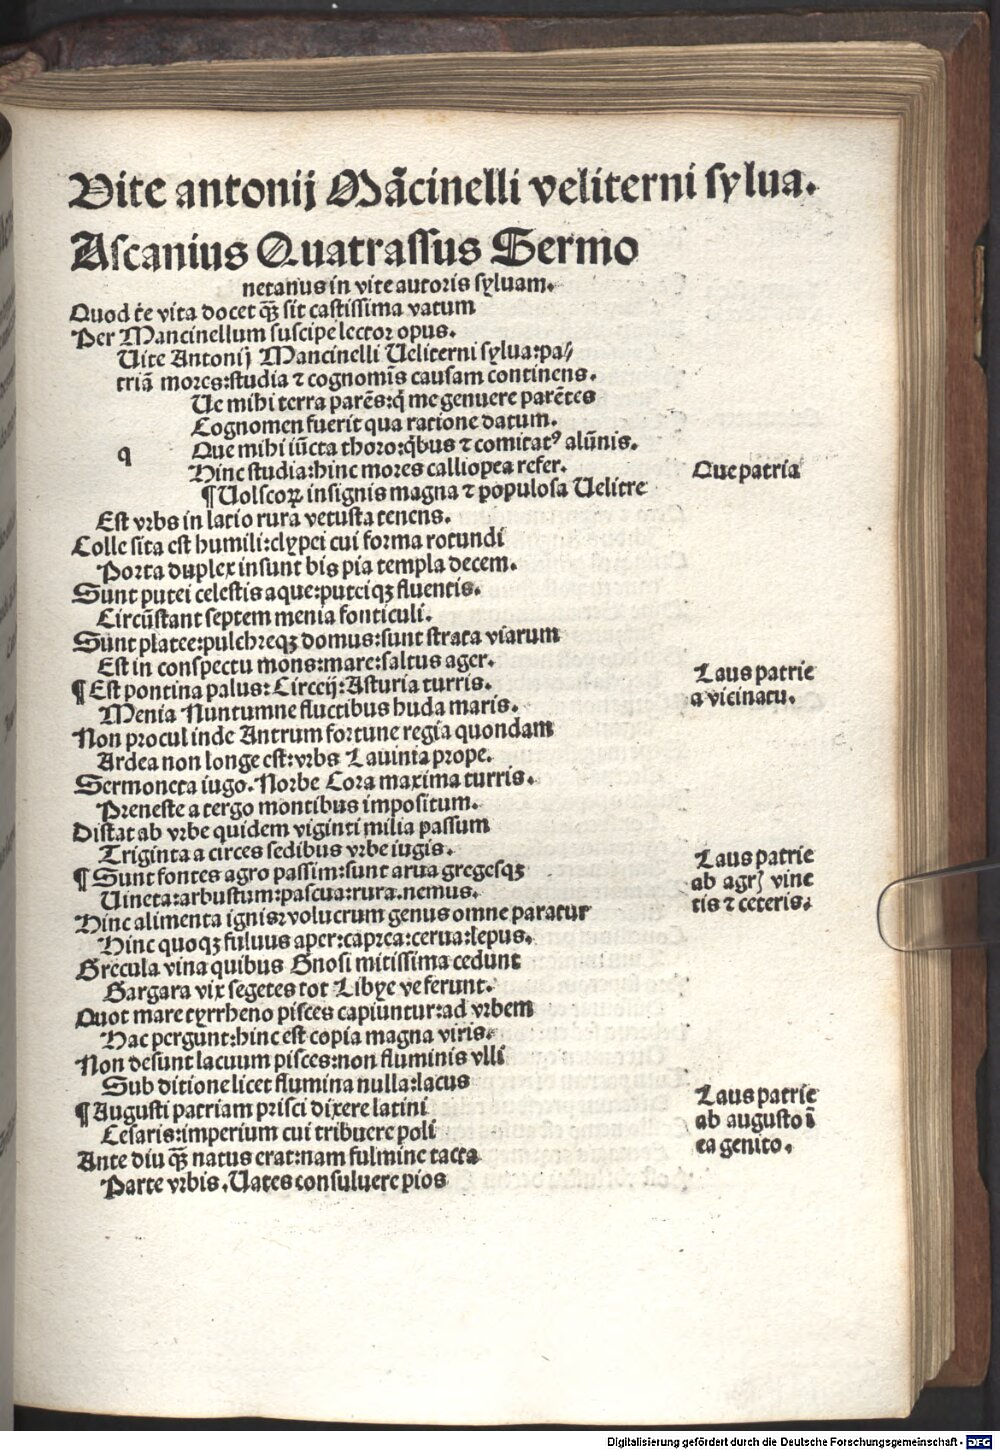 Vite antonij Mãcinelli veliterni sylua.
Ascanius Quatrassus Sermo
netanus in vite autoris syluam.
Quod te vita docet qȝ sit castissima vatum
Per Mancinellum suscipe lector opus.
Uite Antonij Mancinelli Ueliterni sylua:pa⸗
triã mores:studia ⁊ cognomĩs causam continens.
Ue mihi terra parẽs:q̃ me genuere parẽtes
Cognomen fuerit qua ratione datum.
q Que mihi iũcta thoro:q̃bus ⁊ comitatꝰ alũnis.
Hinc studia:hinc mores calliopea refer.
Que patria
¶ Uolscoꝝ insignis magna ⁊ populosa Uelitre
Est vrbs in latio rura vetusta tenens.
Colle sita est humili:clypei cui forma rotundi
Porta duplex insunt bis pia templa decem.
Sunt putei celestis aque:puteiqȝ fluentis.
Circũstant septem menia fonticuli.
Sunt platee:pulchreqȝ domus:sunt strata viarum
Est in conspectu mons:mare:saltus ager.
Laus patrie
¶ Est pontina palus: Circeij: Asturia turris.
a vicinatu.
Menia Nuntumne fluctibus huda maris.
Non procul inde Antrum fortune regia quondam
Ardea non longe est:vrbs Lauinia prope.
Sermoneta iugo. Norbe Cora maxima turris.
Preneste a tergo montibus impositum.
Distat ab vrbe quidem viginti milia passum
Triginta a circes sedibus vrbe iugis.
Laus patrie
¶ Sunt fontes agro passim:sunt arua gregesqȝ
ab agrꝭ vine
Uineta:arbustum:pascua:rura.nemus.
tis ⁊ ceteris.
Hinc alimenta ignis:volucrum genus omne paratur
Hinc quoqȝ fuluus aper:caprea:cerua:lepus.
Grecula vina quibus Gnosi mitissima cedunt
Gargara vix segetes tot Libye ve ferunt.
Quot mare tyrrheno pisces capiuntur:ad vrbem
Hac pergunt:hinc est copia magna viris.
Non desunt lacuum pisces:non fluminis vlli
Sub ditione licet flumina nulla:lacus
Laus patrie
¶ Augusti patriam prisci dixere latini
ab augusto ĩ
Cesaris:imperium cui tribuere poli
ea genito.
Ante diu qȝ natus erat:nam fulmine tacta
Parte vrbis. Uates consuluere pios
Digitalisierung gefördert durch die Deutsche Forschungsgemeinschaft - DFG